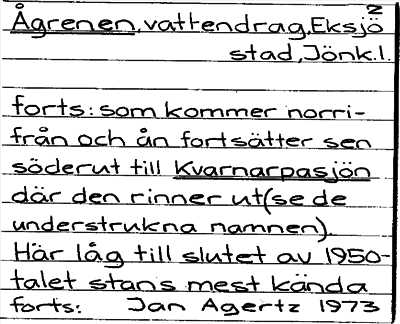 2
Ågrenen, vattendrag, Eksjö
stad, Jönk.l.
forts: som kommer norri-
från och ån fortsätter sen
söderut till Kvarnarpasjön
där den rinner ut (se de
understrukna namnen).
Här låg till slutet av 1950-
talet stans mest kända
forts: Jan Agertz 1973